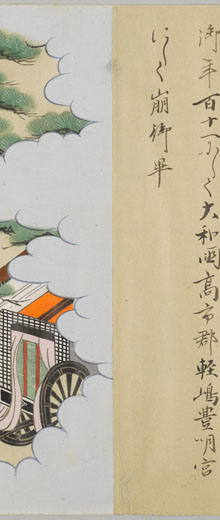 御年百十一にて大和国高市郡軽嶋豊明宮
にて崩御畢